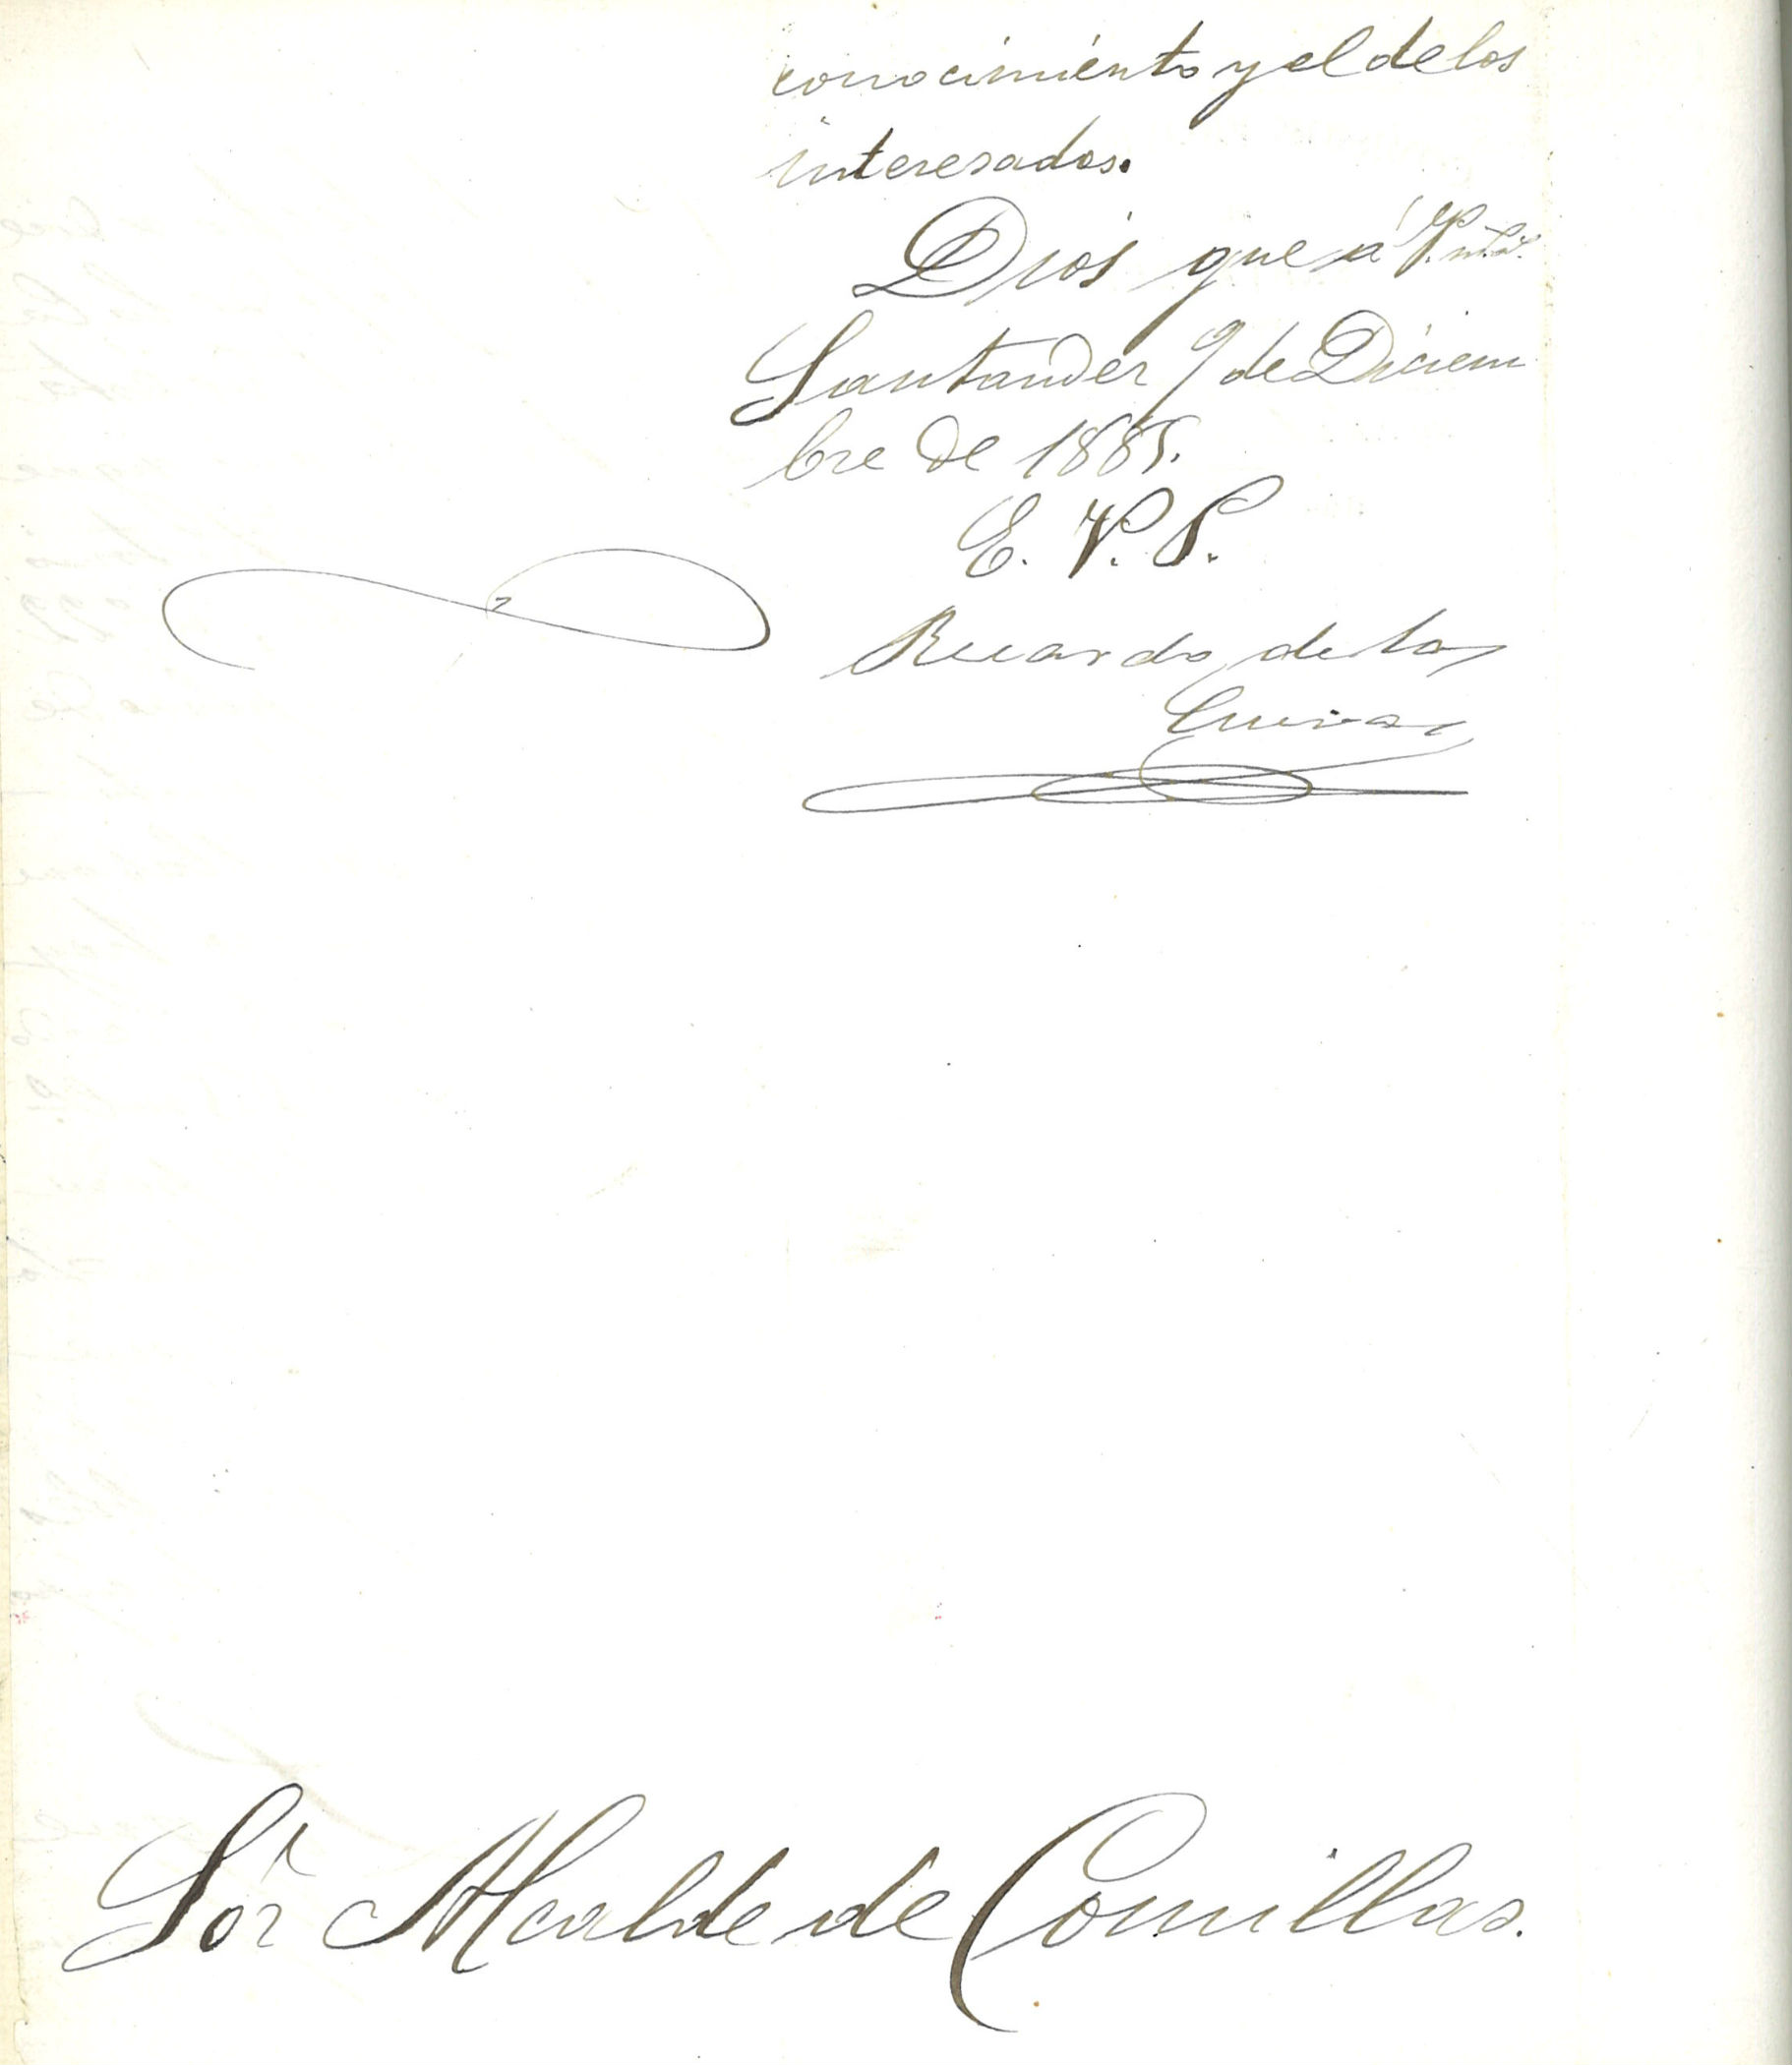 conocimiento y el de los
interesados.
Dios gue a V. m. a.
Santander 9 de Diciem
bre de 1885.
E. V. P.
Ricardo de la
Cueva
Sor Alcalde de Comillas.